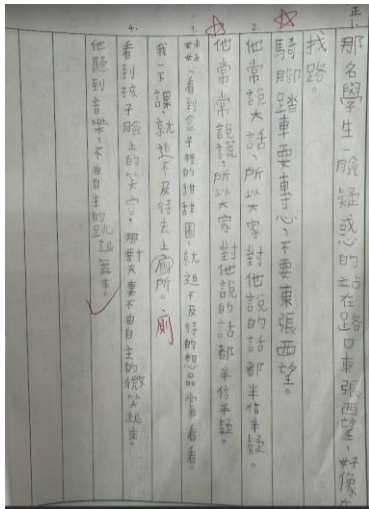 正1. 那名學生一臉疑惑的站在路口東張西望,好像在
找路。
騎腳踏車要專心,不要東張西望。
2. 他常說大話,所以大家對他說的話都半信半疑。
他常常說謊,所以大家對他說的話都半信半疑。
3. 妹妹看到盒子裡的甜甜圈,就迫不及待的想品嘗看看。
我一下課,就迫不及待去上廁所。廁
4. 看到孩子臉上的笑容,那對夫妻不由自主的微笑起來。
他聽到音樂,不由自主的跳起舞來。